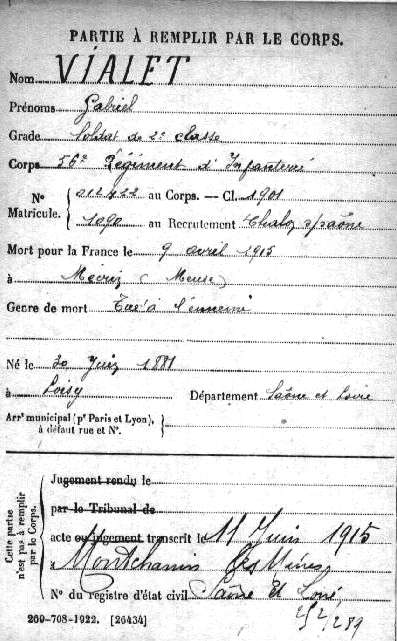 PARTIE À REMPLIR PAR LE CORPS.
Nom VIALET
Prénoms Gabriel
Grade Soldat de 2e classe
Corps 56e Régiment d'Infanterie
N° Matricule. 012422 au Corps. — Cl. 1901
1090 au Recrutement Chalon s/Saône
Mort pour la France le 9 avril 1915
à (Meuse)
Genre de mort Tué à l'ennemi
Né le 30 Juin 1881
à Loisy Département Saône et Loire
Arrt municipal (pr Paris et Lyon),
à défaut rue et N°.
Cette partie n'est pas à remplir par le Corps.
Jugement rendu le
par le Tribunal de
acte ou jugement transcrit le 11 Juin 1915
à Montchanin les Mines
N° du registre d'état civil Saône et Loire
289
260-708-1922. [26434]